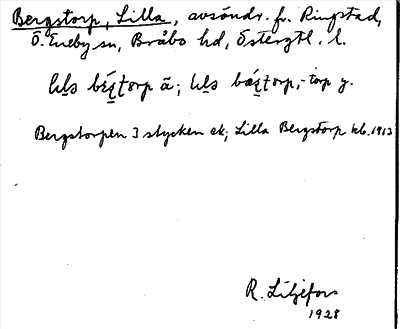 Bergstorp, Lilla, avsöndr. fr. Ringstad,
Ö. Eneby sn, Bråbo hd, Östergtl. l.
torp ä; torp, -torp y.
Bergstorpen 3 stycken ek; Lilla Bergstorp kb. 1913
R. Liljefors
1928